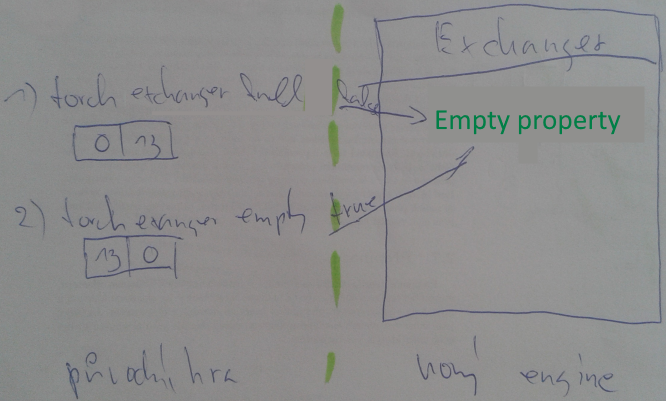 Exchanger
1) torch exchanger full false
0 13
Empty property
2) torch exanger empty true
13 0
původní hra
nový engine